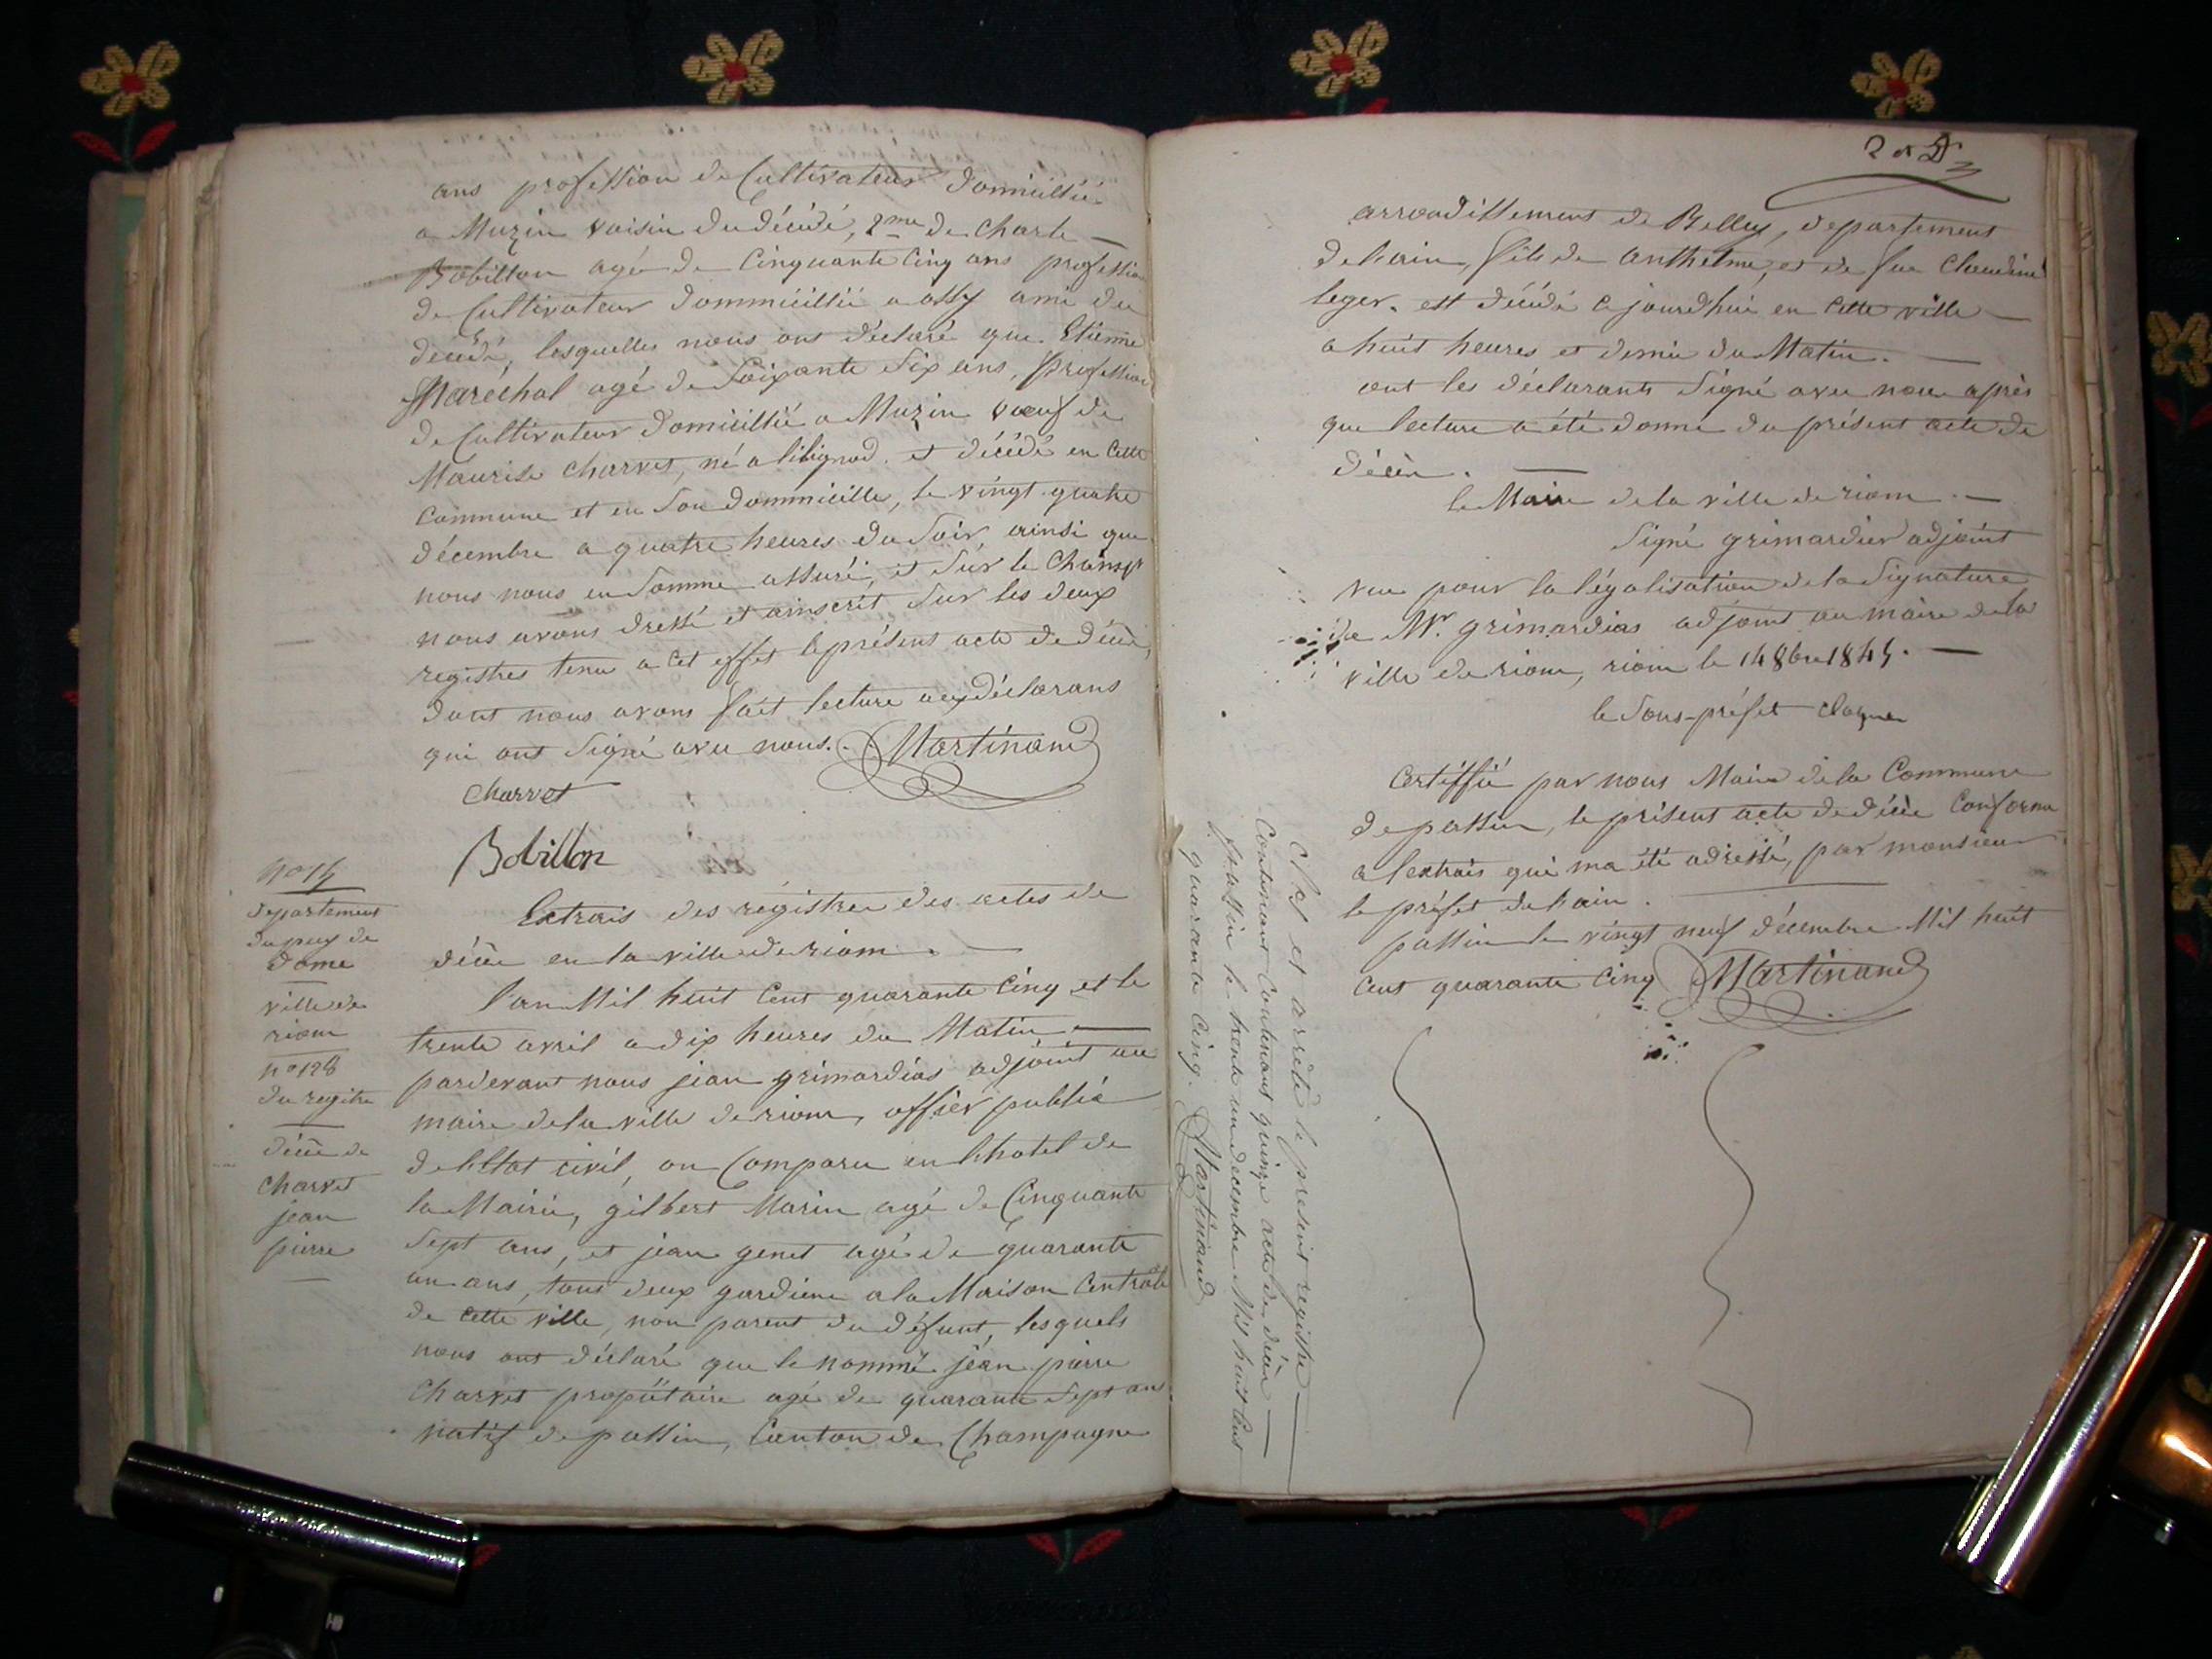 ans profession de Cultivateur domicillié
a Muzin voisin du décédé, 2me de Charle
Bobillon agé de Cinquante Cinq ans profession
de Cultivateur dommicillié a ossy ami du
décédé, lesquelles nous ont déclaré que Etienne
Maréchal agé de Soixante Six ans, profession
de Cultivateur domicillié a Muzin veuf de
Maurise Charvet, né a lilignod. et décédé en Cette
Commune et en Son dommicille, le vingt quatre
décembre a quatre heures du Soir, ainsi que
nous nous en Somme assuré, et Sur le Champ
nous avons dressé et ainscrit Sur les deux
registres tenu a Cet effet le présent acte de décè,
dont nous avons fait lecture aux déclarans
qui ont Signé avec nous. Martinand
Charvet
Bobillon
No 15
departement
du puy de
dome
ville de
riom
no 128
du regitre
décè de
Charvet
jean
pierre
Extrais des régistre des actes de
décè en la ville de riom.
l'an Mil huit Cent quarante Cinq et le
trente avril a dix heures du Matin
pardevant nous jean grimardias adjoint au
maire de la ville de riom, offier publié
de l'Etat civil, on Comparu en l'hotel de
la Mairie, gilbert Marin agé de Cinquante
Sept ans, et jean genet agé de quarante
un ans, tous deux gardiens a la Maison Centrale
de Cette ville, non parent du défunt, lesquels
nous ont déclaré que le nommé jean pierre
Charvet propiétaire agé de quarante Sept ans
natif de passin, Canton de Champagne
arrondissement de Belley, departement
de l'ain, fils de anthelme, et de feu Claudine
leger. est décédé ajourd'hui en Cette ville
a huit heures et demie du Matin.
ont les déclarants Signé avec nous après
que lecture a été donné du présent acte de
décès.
le Maire de la ville de riom.
Signé grimardier adjoint
vue pour la légalisation de la Signature
de Mr. grimardias adjoint au maire de la
ville de riom, riom le 14 8bre 1845.
le Sous-préfet
Certiffié par nous Maire de la Commune
de passin, le présent acte de décè Conforme
a l'extrais qui ma été adressé, par monsieur
le préfet de l'ain.
passin le vingt neuf décembre Mil huit
Cent quarante Cinq Martinand
Clos et arrêté le présent registre
Contenant Contenant quinze acte de décès
passin le trente un decembre Mil huit Cent
quarante Cinq. Martinand